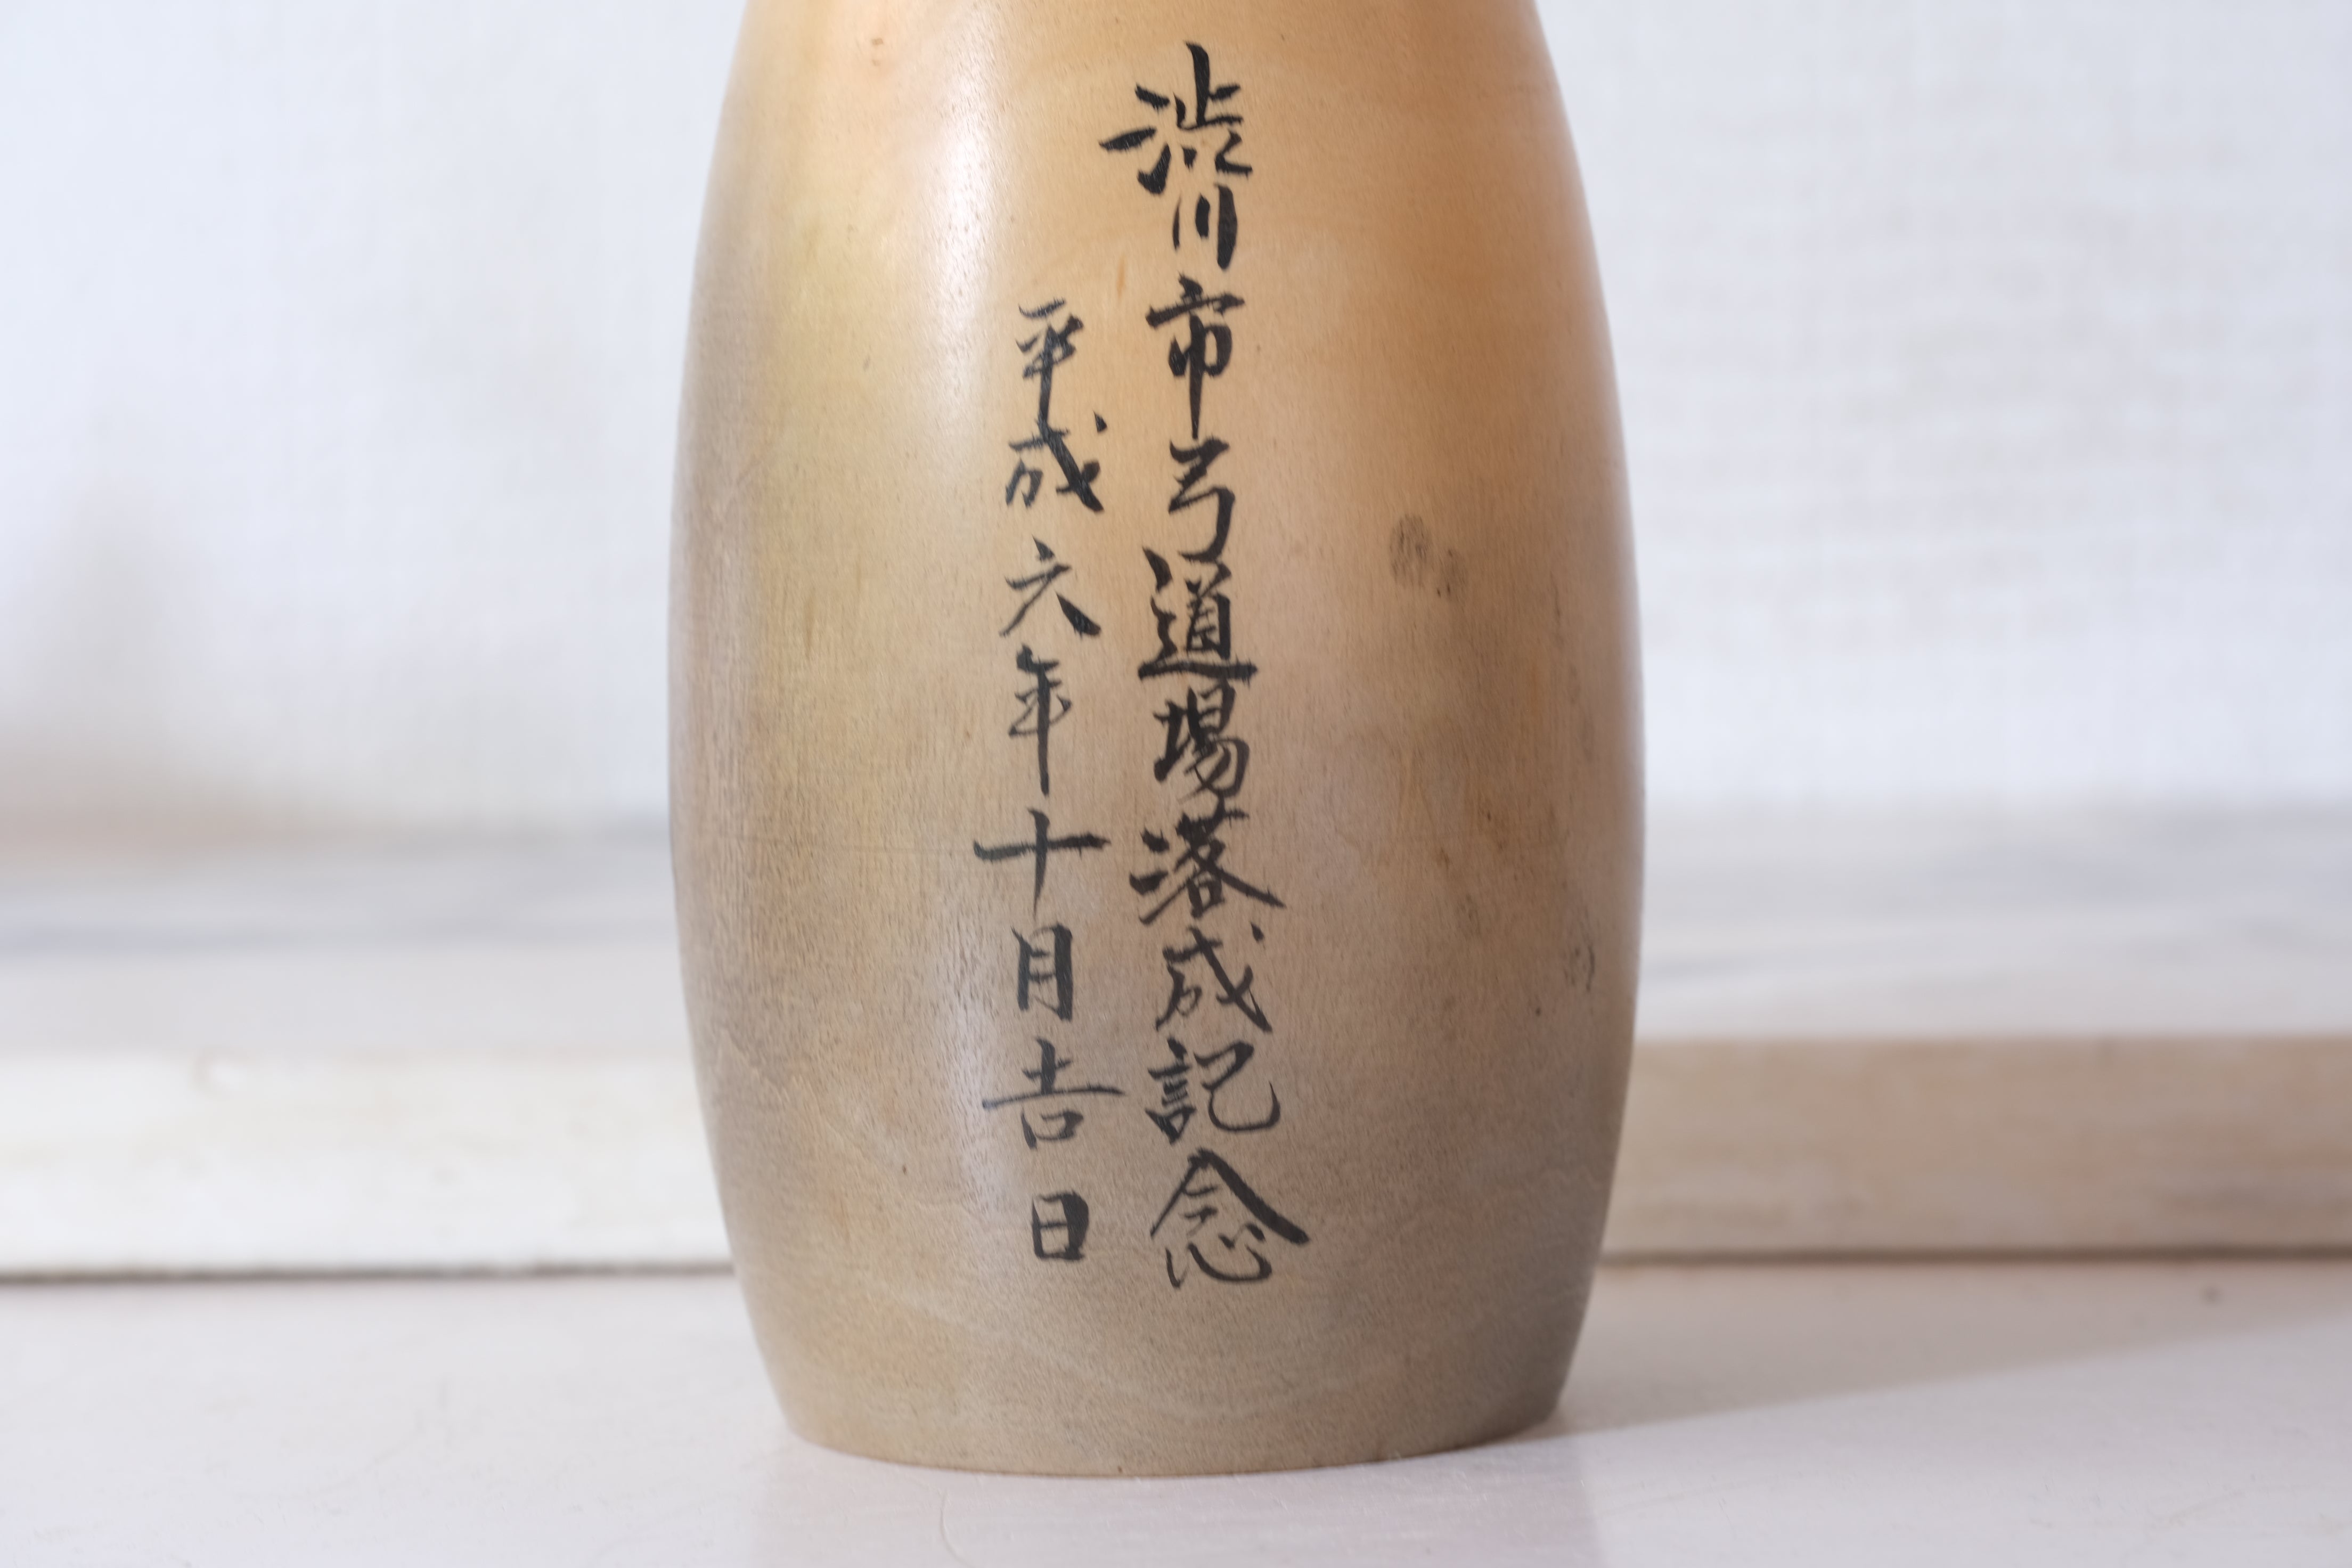 渋川市弓道場落成記念
平成六年十月吉日